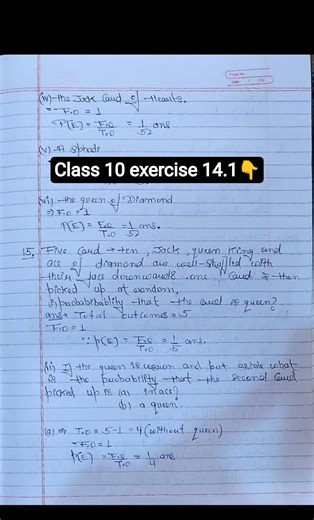 (iv) the Jack Card of Hearts.
F.O = 1
P(E) = F.O / T.O = 1/52 ans
(v) A Sphade
Class 10 exercise 14.1👇
(vi) the queen of Diamond
⇒ F.O = 1
P(E) = F.O / T.O = 1/52 ans.
15. Five Card → ten, Jack, queen King and
ace of diamond are well-shuffled with
their face downwards. one Card is then
picked up at random,
(i) probability that the Card is queen?
ans → Total outcomes = 5
F.O = 1
∴ P(E) = F.O / T.O = 1/5 ans
(ii) If the queen is drawn and put aside what
is the probability that the second Card
picked up is (a) an ace
(b) a queen.
(a) ⇒ T.O = 5-1 = 4 (without queen)
F.O = 1
P(E) = F.O / T.O = 1/4 ans